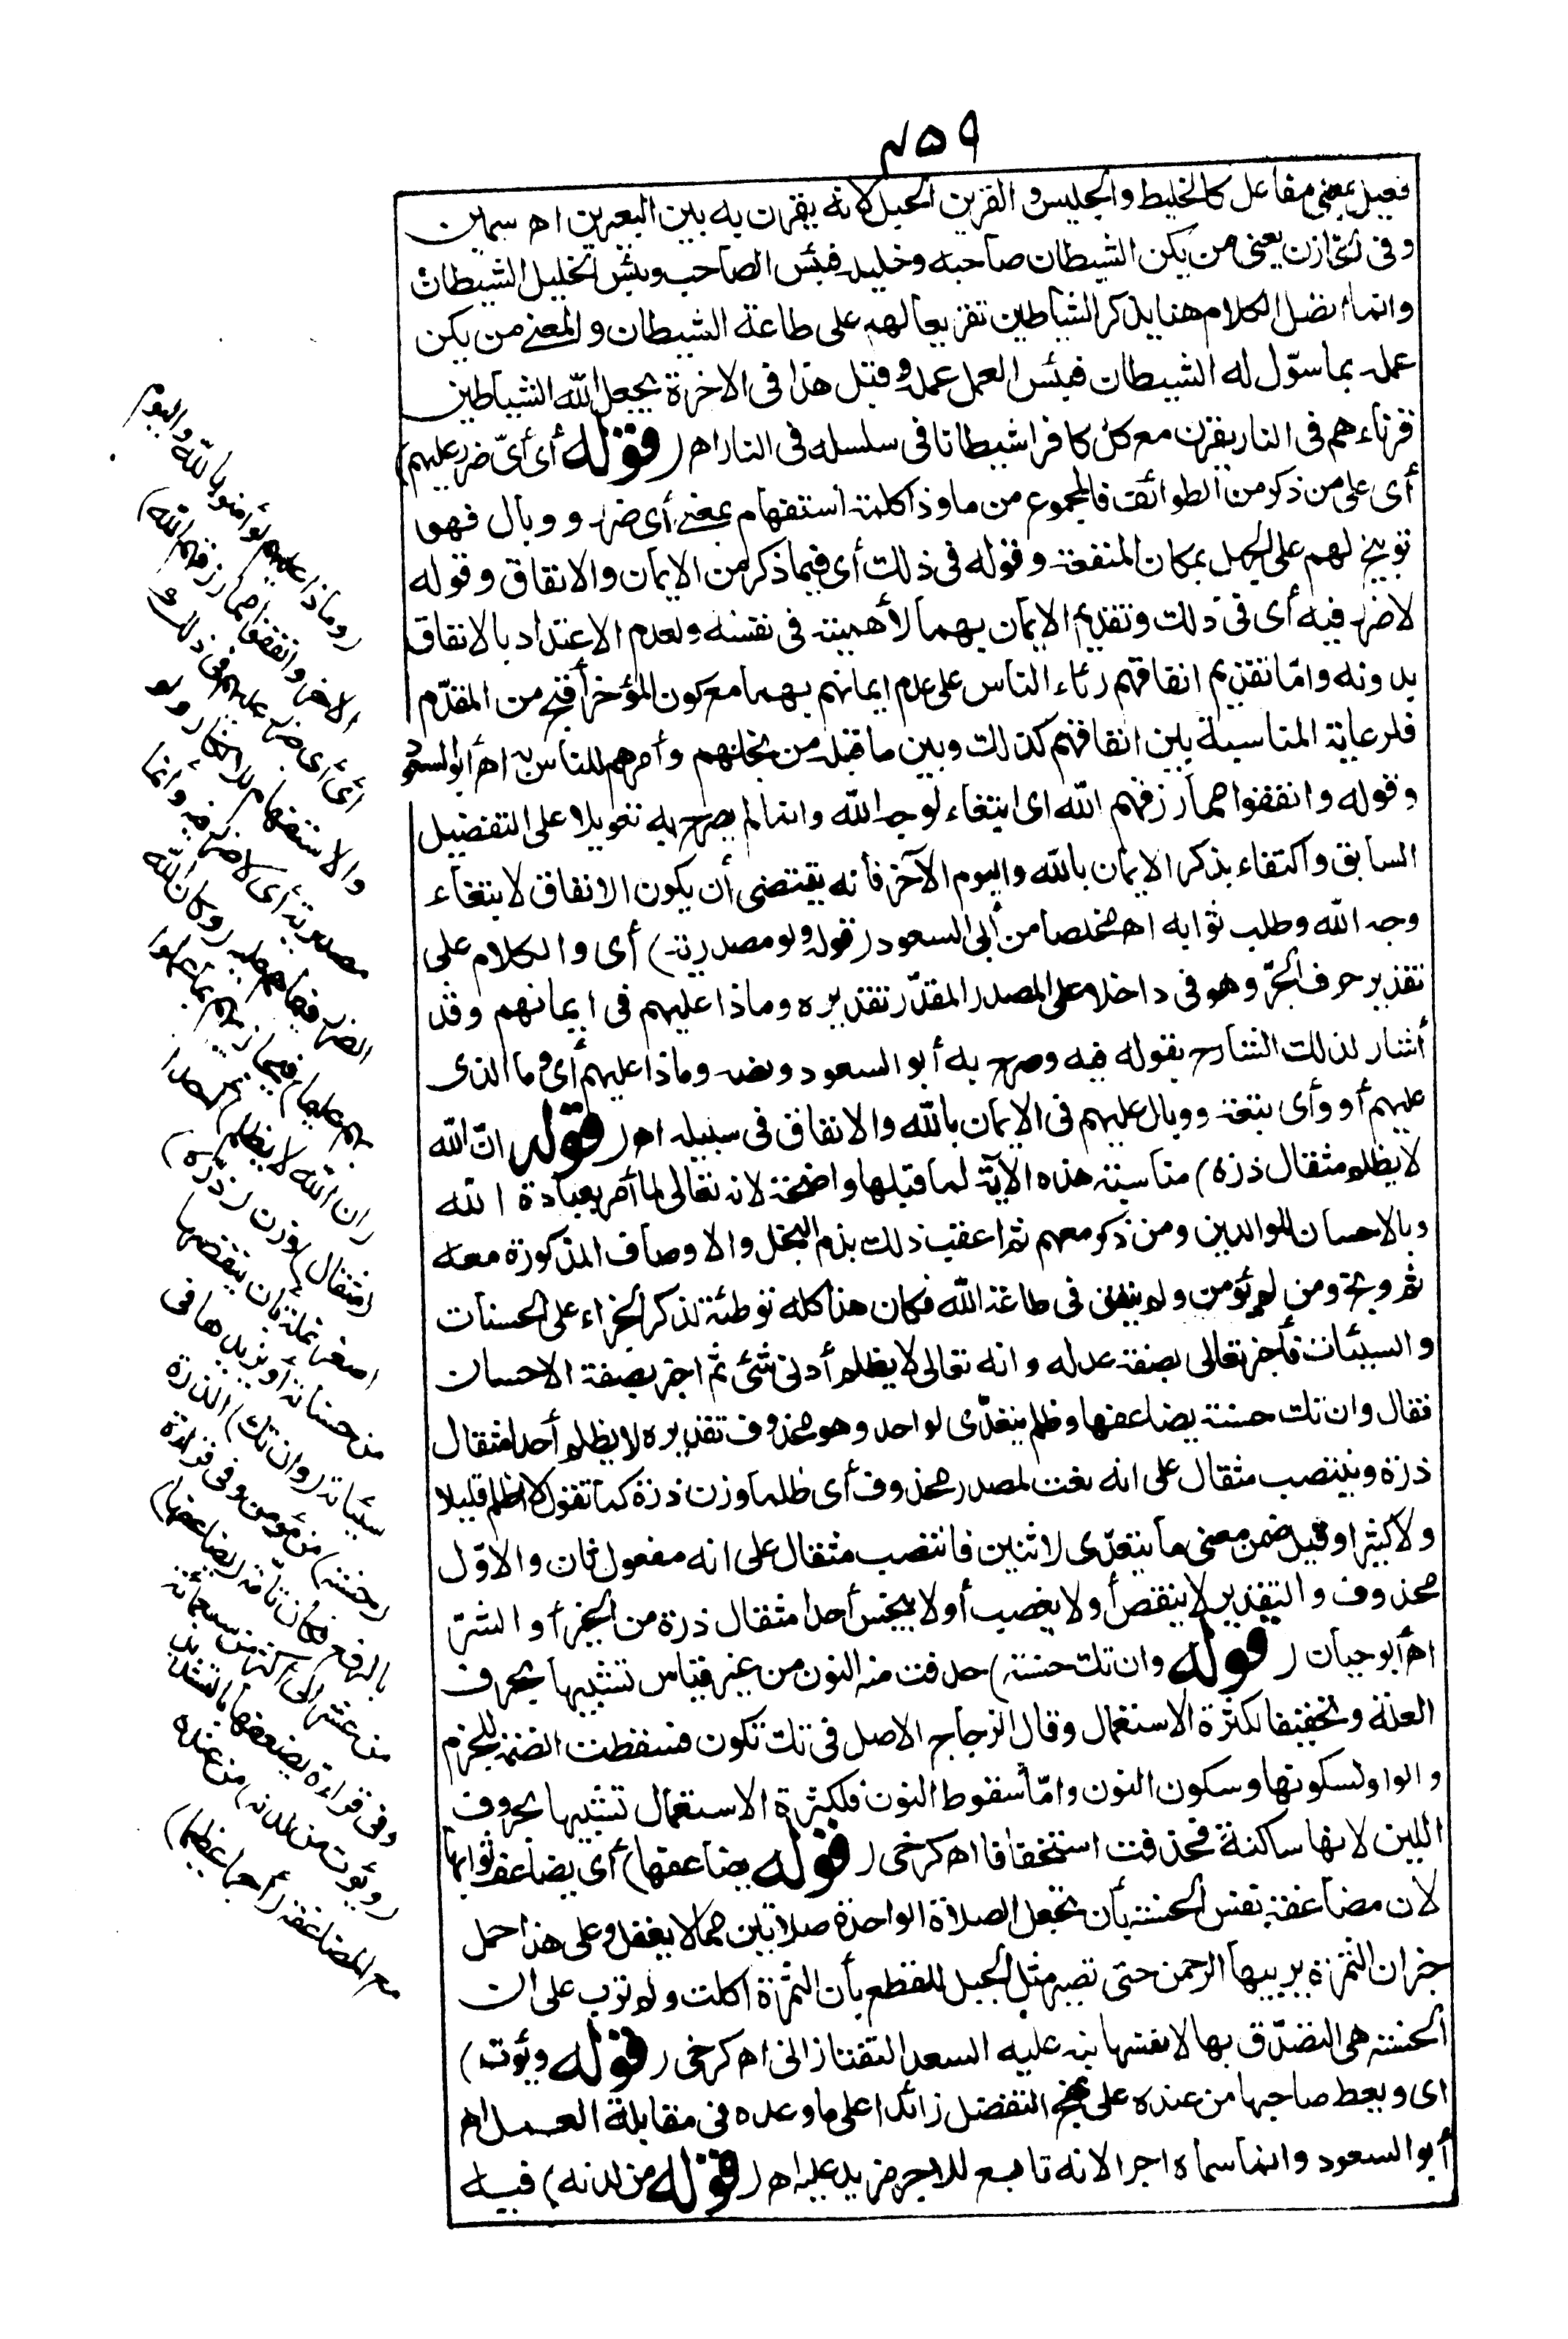 ٤٥٩
فعيل بمعنى مفاعل كالخليط والجليس والقرين الحبل لانه يقرن به بين البعيرين اه سمين
وفى الخازن يعنى من يكن الشيطان صاحبه وخليله فبئس الصاحب وبئس الخليل الشيطان
وانما اتصل الكلام هنا بذكر الشياطين تقريعا لهم على طاعة الشيطان والمعنى من يكن
عمله بما سوّل له الشيطان فبئس العمل عمله وقيل هذا فى الاخرة يجعل الله الشياطين
قرناءهم فى النار يقرن مع كل كافر شيطانا فى سلسله فى النار اه (قوله أى أىّ ضرر عليهم)
أى على من ذكر من الطوائف فالمجموع من ما وذا كلمة استفهام بمعنى أى ضرر ووبال فهو
توبيخ لهم على الجهل بمكان المنفعة وقوله فى ذلك أى فيما ذكر من الايمان والانفاق وقوله
لا ضرر فيه أى فى ذلك وتقديم الايمان بهما لأهميته فى نفسه ولعدم الاعتداد بالانفاق
بدونه وامّا تقديم انفاقهم رئاء الناس على عدم ايمانهم بهما مع كون المؤخر أقبح من المقدّم
فلرعاية المناسبة بين انفاقهم كذلك وبين ما قبله من بخلهم وأمرهم للناس به اه أبو السعود
وقوله وانفقوا مما رزقهم الله اى ابتغاء لوجه الله وانما لم يصرح به تعويلا على التفضيل
السابق واكتفاء بذكر الايمان بالله واليوم الآخر فأنه يقتضى أن يكون الانفاق لابتغاء
وجه الله وطلب ثوابه اه ملخصا من أبى السعود (قوله ولو مصدرية) أى والكلام على
تقدير حرف الجرّ وهو فى داخلا على المصدر المقدّر تقديره وماذا عليهم فى ايمانهم وقد
أشار لذلك الشارح بقوله فيه وصرح به أبو السعود ونصه وماذا عليهم أى وما الذى
عليهم أو وأى تبعة ووبال عليهم فى الايمان بالله والانفاق فى سبيله اه (قوله انّ الله
لا يظلم مثقال ذرة) مناسبة هذه الآية لما قبلها واضحة لانه تعالى لما أمر بعبادة الله
وبالاحسان للوالدين ومن ذكر معهم ثم اعقب ذلك بذم البخل والاوصاف المذكورة معه
ثم وبخ من لم يؤمن ولم ينفق فى طاعة الله فكان هذا كله توطئة لذكر الجزاء على الحسنات
والسيئات فأخبر تعالى بصفة عدله وانه تعالى لا يظلم أدنى شئ ثم اخبر بصفة الاحسان
فقال وان تك حسنة يضاعفها وظلم يتعدّى لواحد وهو محذوف تقديره لا يظلم أحدا مثقال
ذرة وينتصب مثقال على انه نعت لمصدر محذوف أى ظلما وزن ذرة كما تقول لا اظلم قليلا
ولا كثيرا وقيل ضمن معنى ما يتعدّى لاثنين فانتصب مثقال على انه مفعول ثان والاوّل
محذوف والتقدير لا ينقص أو لا يغصب أو لا يبخس أحدا مثقال ذرة من الخير أو الشرّ
اه أبو حيان (قوله وان تك حسنة) حذفت منه النون من غير قياس تشبيها بحرف
العلة وتخفيفا لكثرة الاستعمال وقال الزجاج الاصل فى تك تكون فسقطت الضمة للجزم
والواو لسكونها وسكون النون وامّا سقوط النون فلكثرة الاستعمال تشبيها بحروف
اللين لانها ساكنة فحذفت استخفافا اه كرخى (قوله يضاعفها) أى يضاعف ثوابها
لان مضاعفة نفس الحسنة بأن تجعل الصلاة الواحدة صلاتين مما لا يعقل وعلى هذا حمل
خبر ان التمرة يربيها الرحمن حتى تصير مثل الجبل للقطع بأن التمرة اكلت ولم تزب على ان
الحسنة هى التصدّق بها لا نفسها نبه عليه السعد التفتازانى اه كرخى (قوله ويؤت)
اى ويعط صاحبها من عنده على نهج التفضل زائدا على ما وعده فى مقابلة العمل اه
أبو السعود وانما سماه اجرا لانه تابع للاجر مزيد عليه اه (قوله من لدنه) فيه
(وماذا عليهم لو أمنوا بالله واليوم
الاخر وانفقوا مما رزقهم الله)
أى أى ضرر عليهم فى ذلك
والاستفهام للانكار ولو
مصدرية أى لا ضرر فيه وانما
الضرر فيما هم عليه (وكان الله
بهم عليما) فيجازيهم بما عملوا
(ان الله لا يظلم) احدا
(مثقال) وزن (ذرّة)
اصغر نملة بان ينقصها
من حسناته أو يزيدها فى
سيئاته (وان تك) الذرة
(حسنة) من مؤمن وفى قراءة
بالرفع فكان تامّة (يضاعفها)
من عشر الى اكثر من سبعمائة
وفى قراءة يضعفها بالتشديد
(ويؤت من لدنه) من عنده
مع المضاعفة (أجرا عظيما)